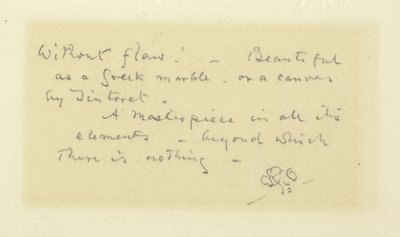 Without flaw! – Beautiful
as a Greek marble – or a canvas
by Tintoret.
A Masterpiece in all its
elements – beyond which
there is nothing –